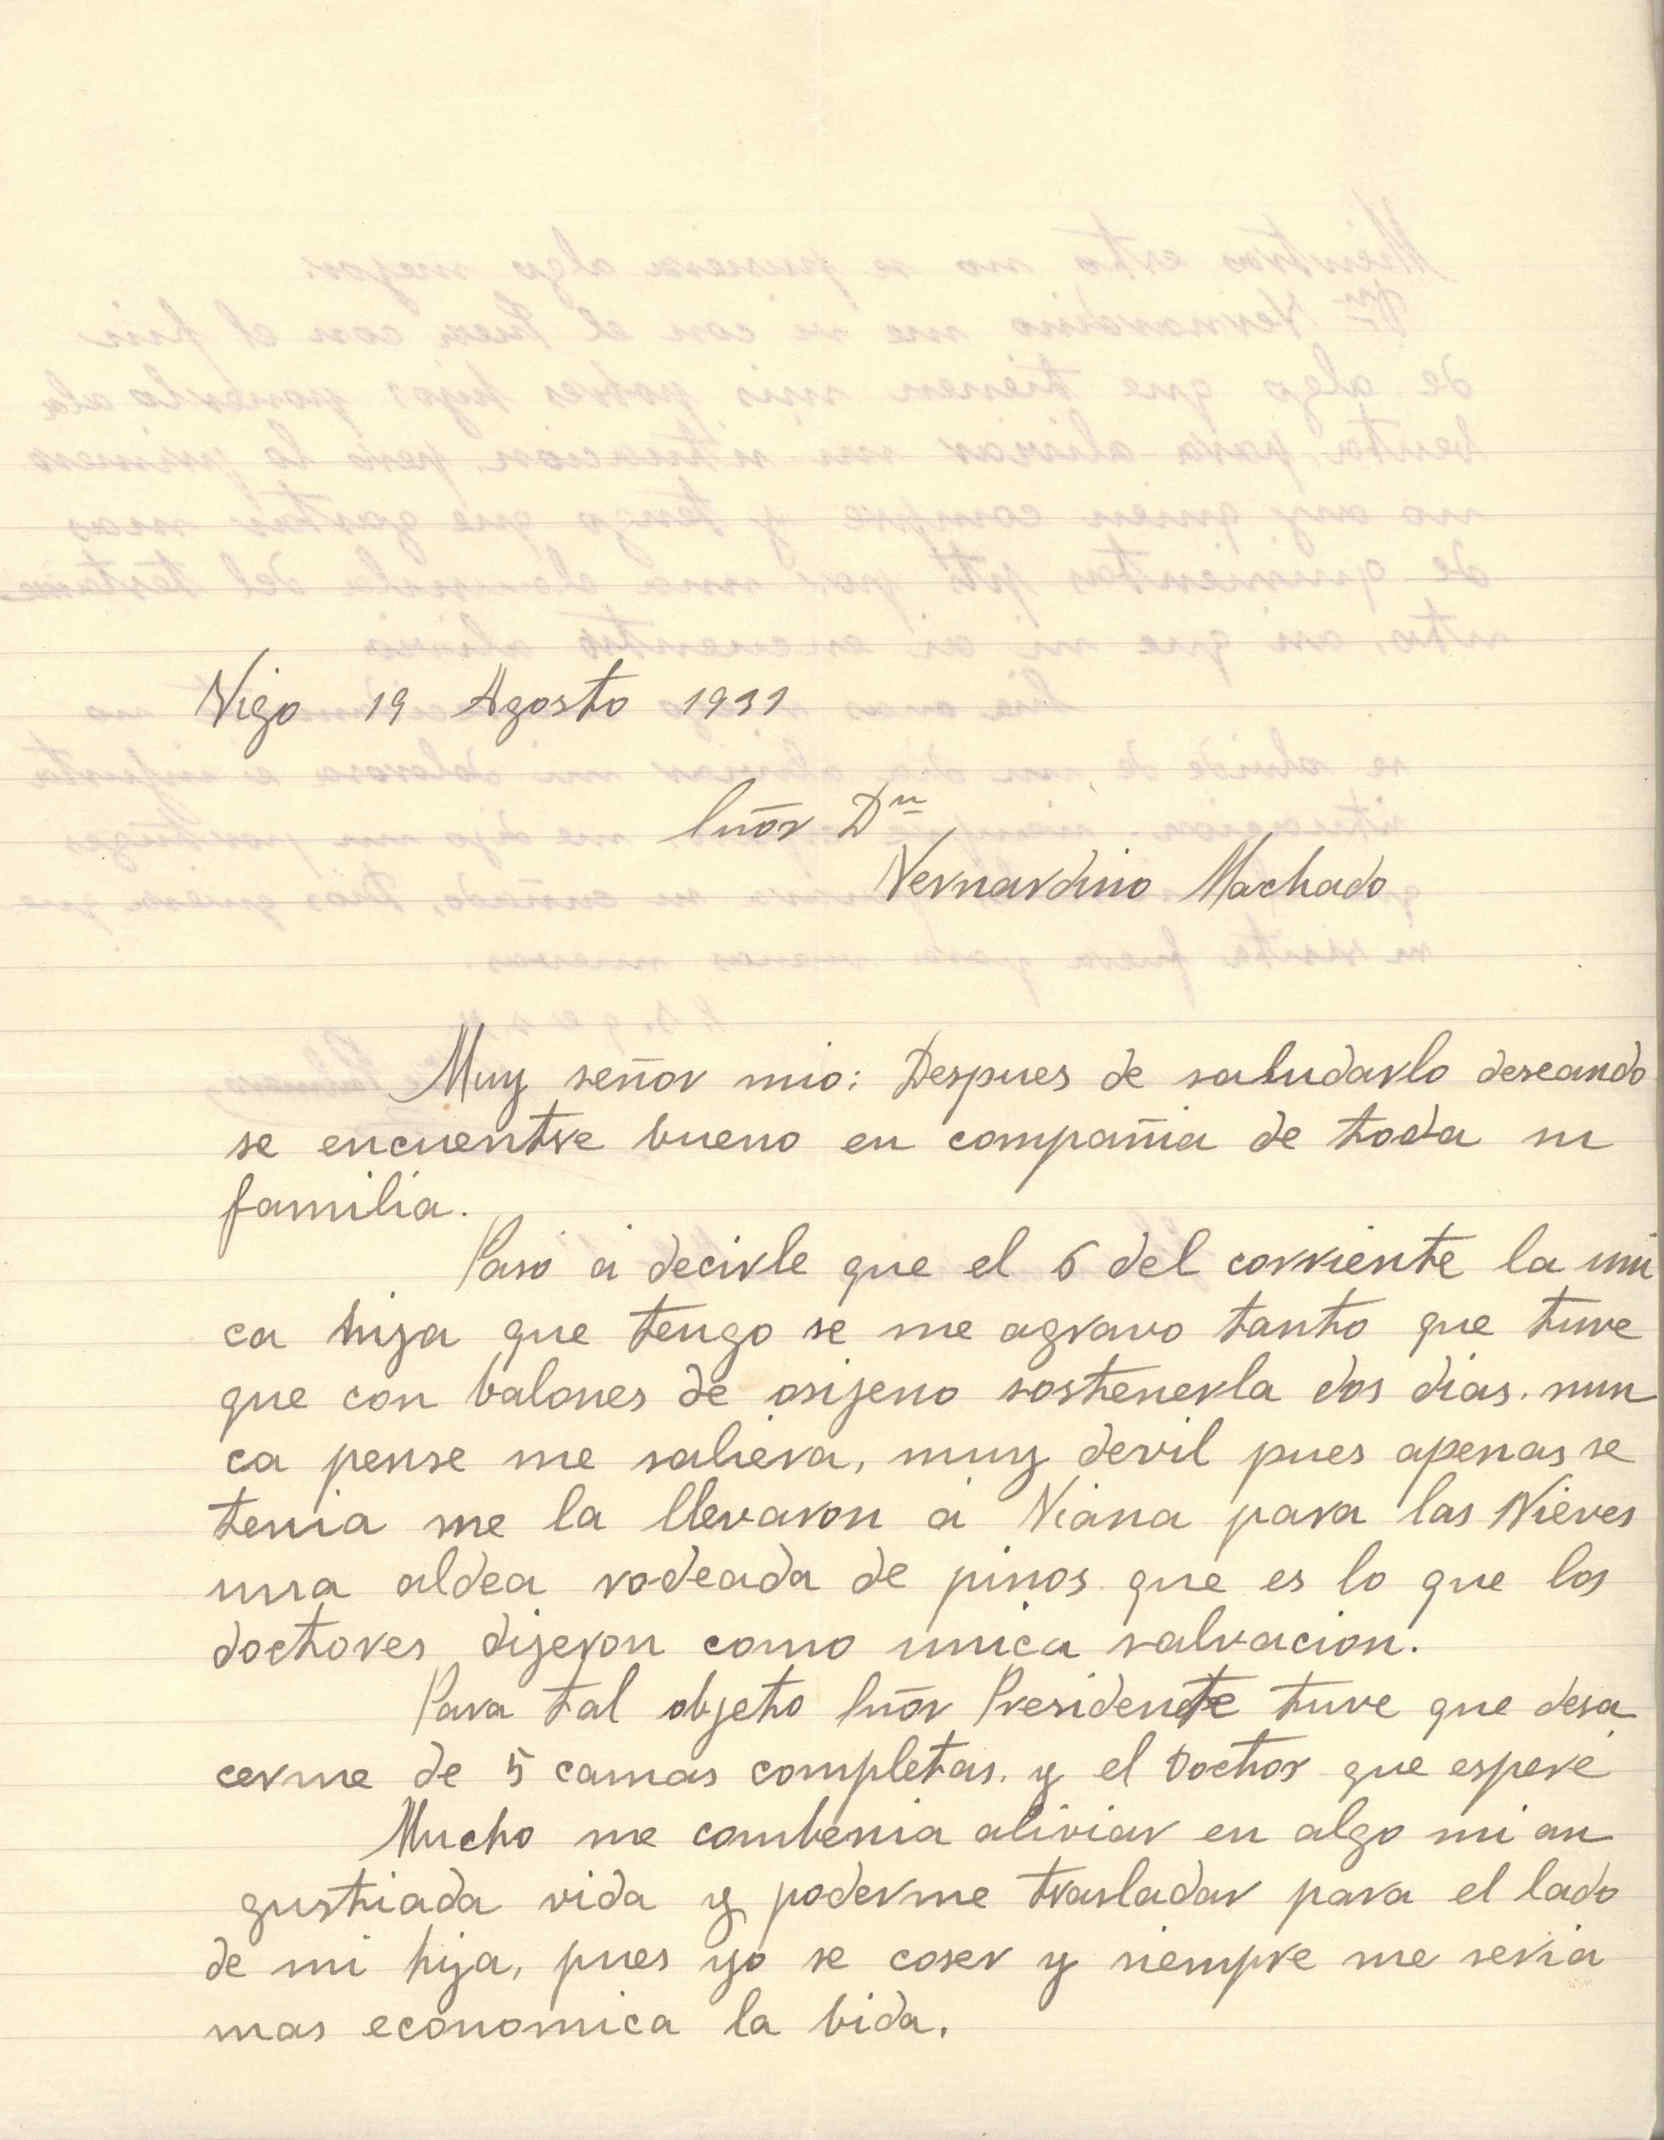 Vigo 19 Agosto 1931
Snõr Dn
Vernardino Machado
Muy señor mio: Despues de saludarlo deseando
se encuentre bueno en compañia de toda su
familia.
Paso á decirle que el 6 del corriente la uni
ca hija que tengo se me agravo tanto que tuve
que con balones de osijeno sostenerla dos dias. nun
ca pense me saliera, muy devil pues apenas se
tenia me la llevaron á Viana para las Nieves
una aldea rodeada de pinos que es lo que los
doctores dijeron como unica salvacion.
Para tal objeto Snõr Presidente tuve que desa
cerme de 5 camas completas. y el Doctor que espere
Mucho me combenia aliviar en algo mi an
gustiada vida y poderme trasladar para el lado
de mi hija, pues yo se coser y siempre me seria
mas economica la bida.